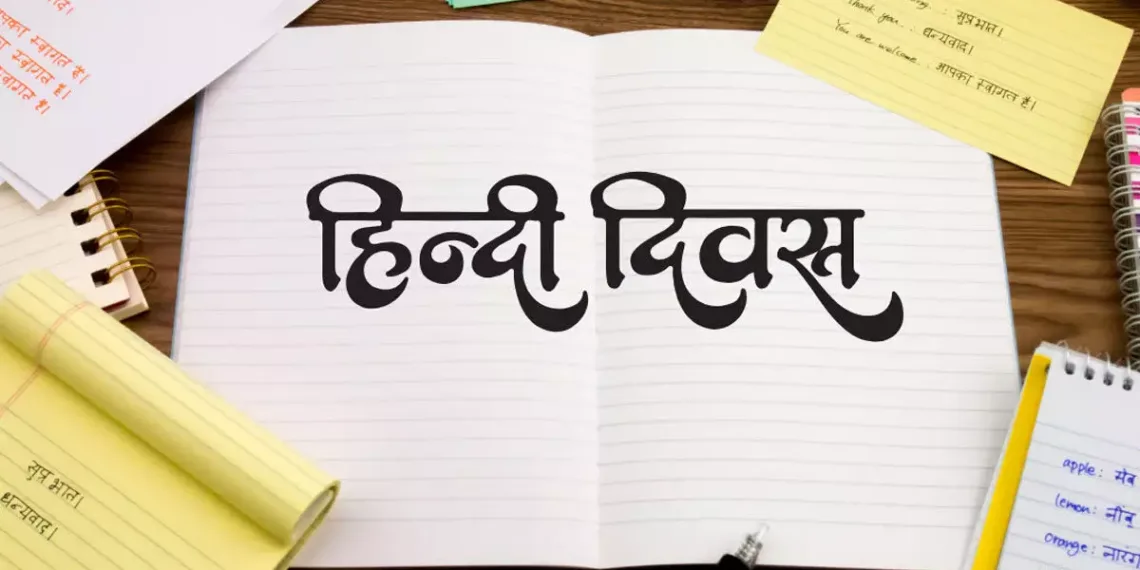 पका स्वागत है।
का स्वागत है।
स्वागत है।
: सुप्रभात।
Thank you : धन्यवाद।
You are welcome : आपका स्वागत है।
हिन्दी दिवस
सुप्रभात।
धन्यवाद।
apple : सेब
lemon : नींबू
orange : नारंग